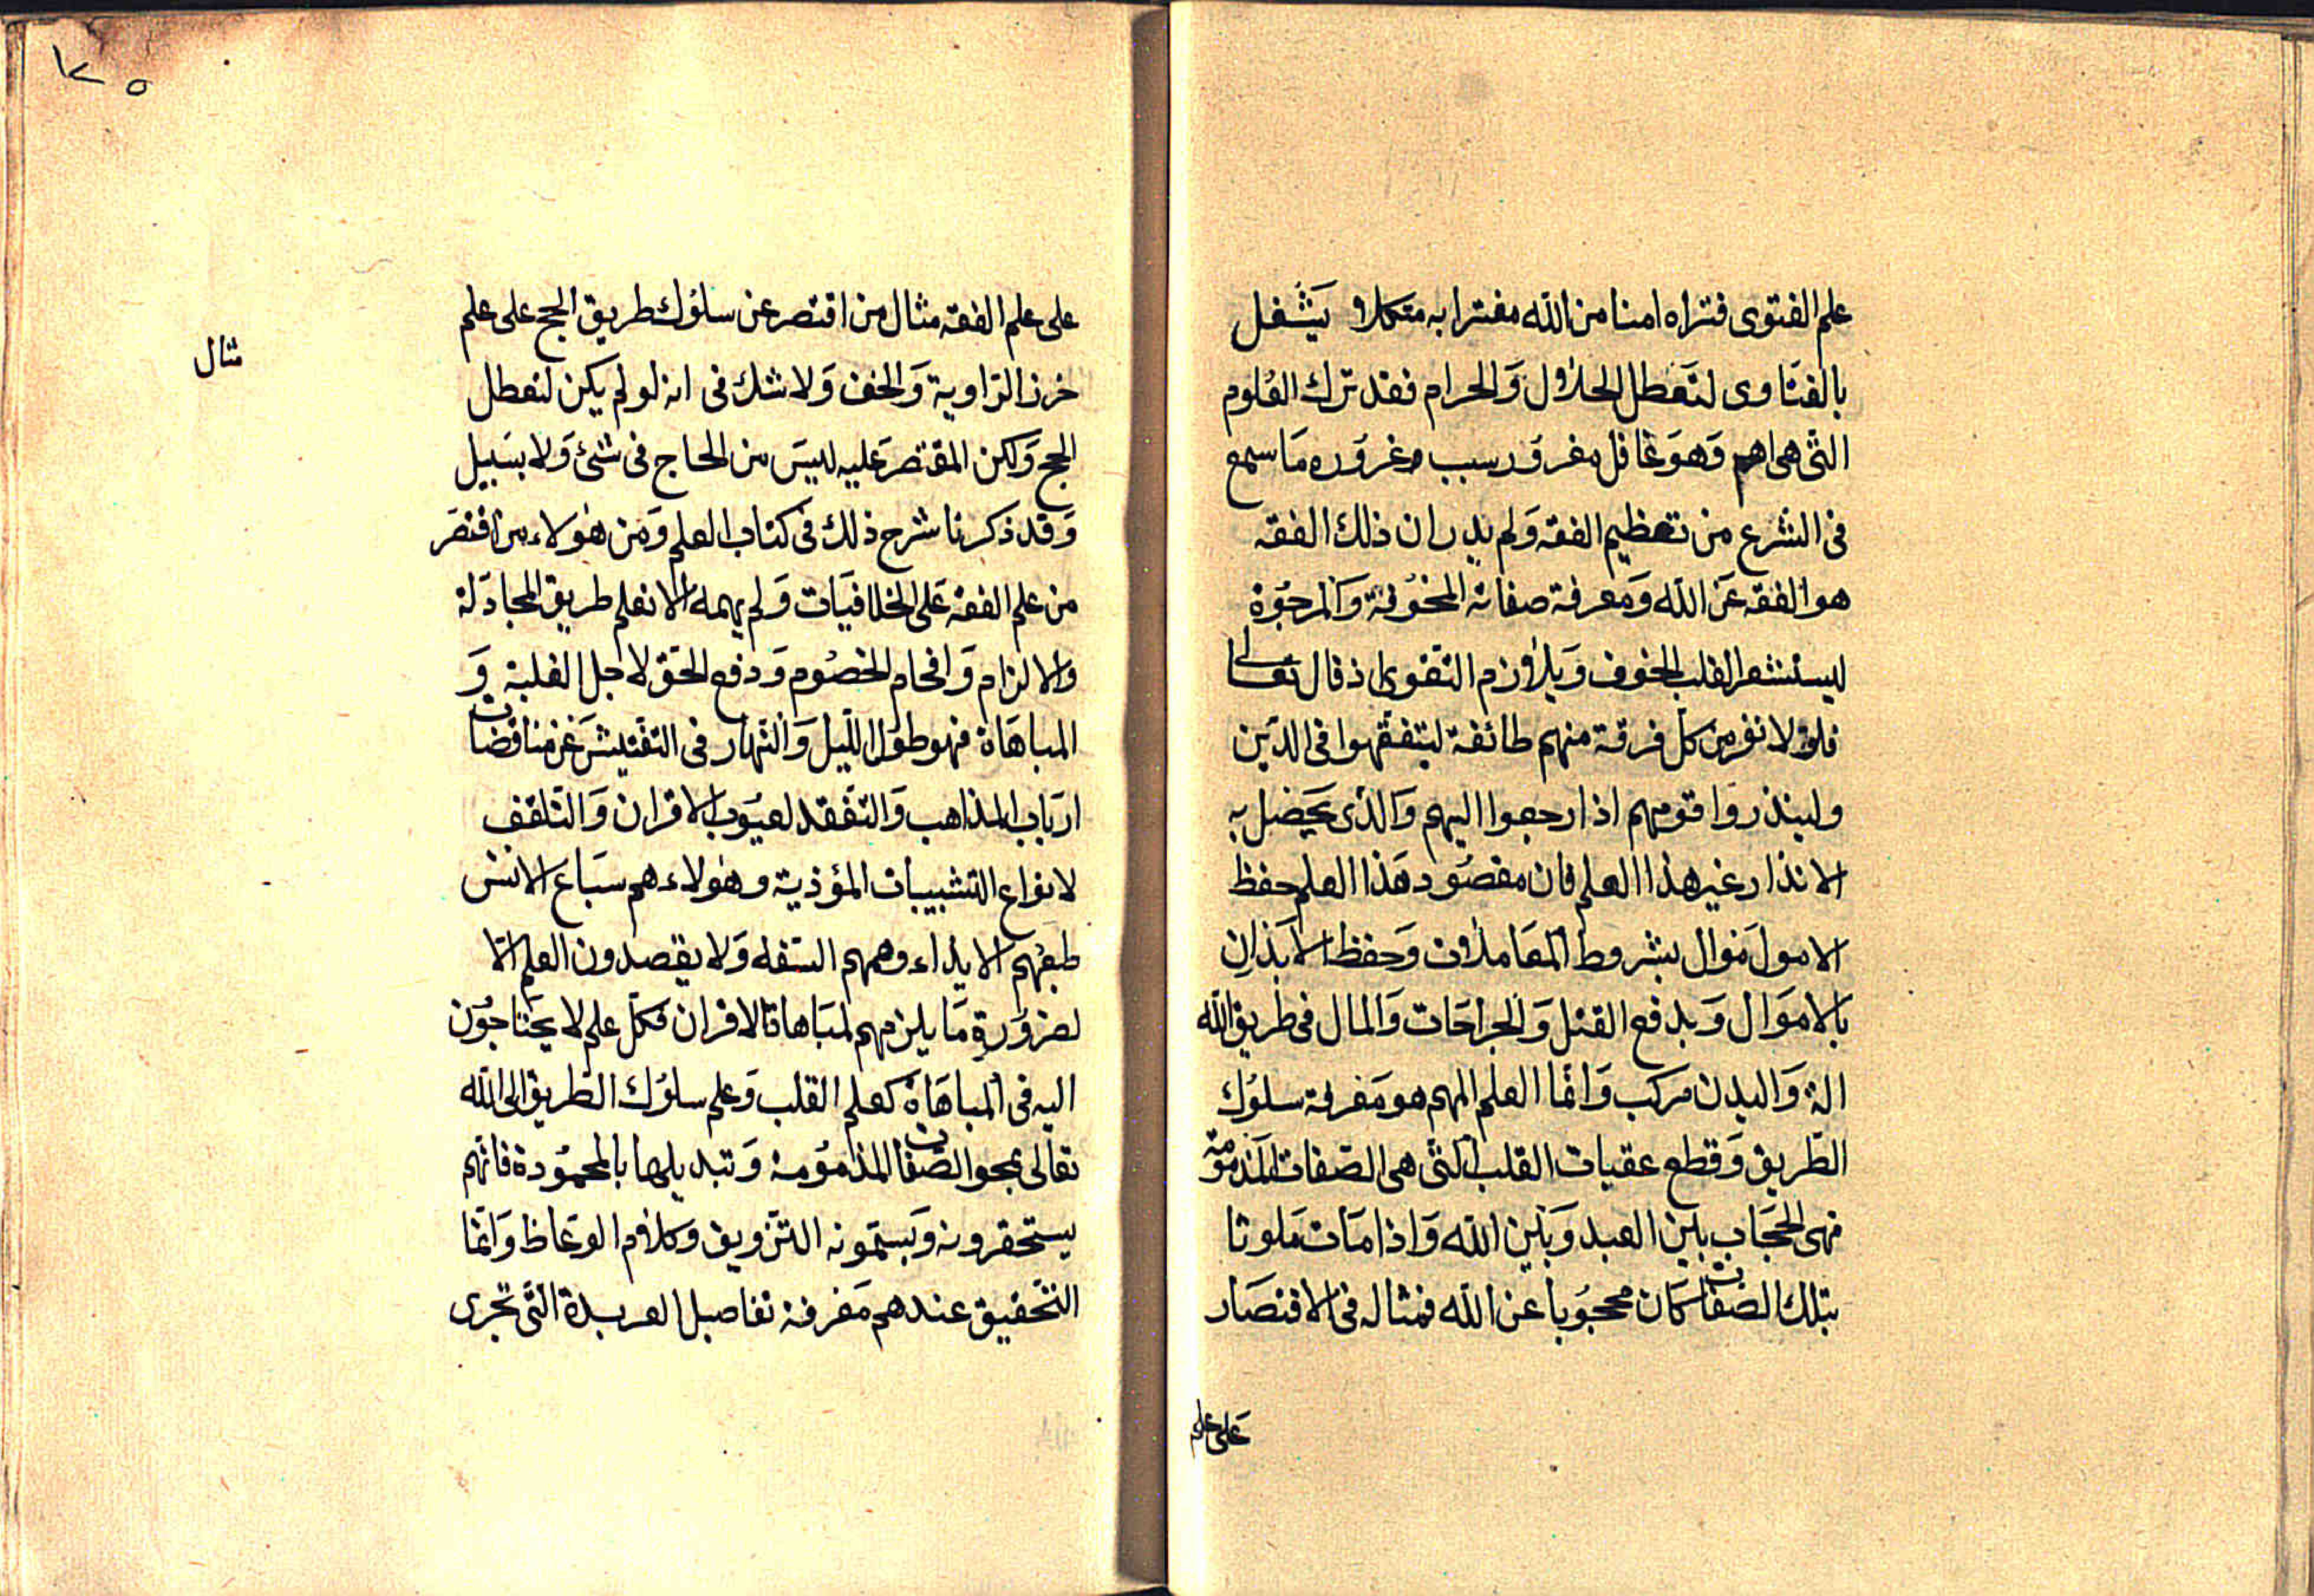 علم الفتوى فتراه امنا من الله مفترا به متكلا يَشغل
بالفتاوى لتَعطل الحلال وَالحرام فقد ترك العُلوم
التى هى اهم وَهوَ غافل مغرور سبب وغروره مَا سمع
فى الشرع من تعظيم الفقه وَلم يدر ان ذلك الفقه
هو الفقه عَن الله وَمعرفة صفاته المخُوفة وَالمرجوّة
ليستشعر القلب الخوف وَيلازم التقوى اذ قال تعالى
فلولا نفر من كل فرقة منهم طائفة ليتفقّهوا فى الدّين
ولينذروا قومهم اذا رجعوا اليهم وَالذى يحصل به
الانذار غير هذا العلم فان مقصُود هَذا العلم حفظ
الامولَ مَوال بشروط المعَاملات وَحفظ الابدَان
بالاموَال وَبدفع القتل وَالجراحَات وَالمال فى طريق الله
الة وَالبدن مركب وَانما العلم المهم هو مَعرفة سلوُك
الطّريق وَقطع عقبات القلب التى هى الصّفات المَذمومَة
فهى الحجَاب بين العبد وَبَين الله وَاذا مَات مَلوثا
بتلك الصّفات كان محجوُبا عن الله فمثاله فى الاقتصَار
عَلى علم
١٢٥
على علم الفقه مثال من اقتصر عن سلوُك طريق الحج على علم
خرز الرّاوية وَالخف وَلا شك فى انه لو لم يكن لتعطل
الحج وَلكن المقتصر عَليه ليسَ من الحاج فى شئ وَلا بسَبيل
وَقد ذكرنا شرح ذلك فى كتاب العلم وَمن هٰولاء من اقتصَر
من علم الفقه عَلى الخلافيَات وَلم يهمه الا تعلم طريق المجادَلة
والالزام وَافحام الخصُوم وَدفع الحَق لاجل الغلبة وَ
المباهَاة فهو طوُل اللّيل وَالنّهار فى التفتيش عَن مناقضات
اربَاب المذاهب وَالتفَقد لعيوُب الاقران وَالتّلقف
لانواع التشبيبات المؤذية وهٰولاء هم سبَاع الانس
طبعُهم الايذاء وهمهم السّفه وَلا يقصدون العلم الّا
لضرُورة مَا يلزمهم لمبَاهاة الاقران فكلّ علم لا يحَتاجُون
اليه فى المباهَاة كعلم القلب وَعلم سلوُك الطّريق الى الله
تعَالى بمحو الصّفات المذموُمة وَتبديلها بالمحموُدة فانّهم
يستحقرونه وَيسمّونه التّزويق وَكلام الوعّاظ وَانّما
التّحقيق عندهم مَعرفة تفاصيل العربدة التّى تجرى
مثال